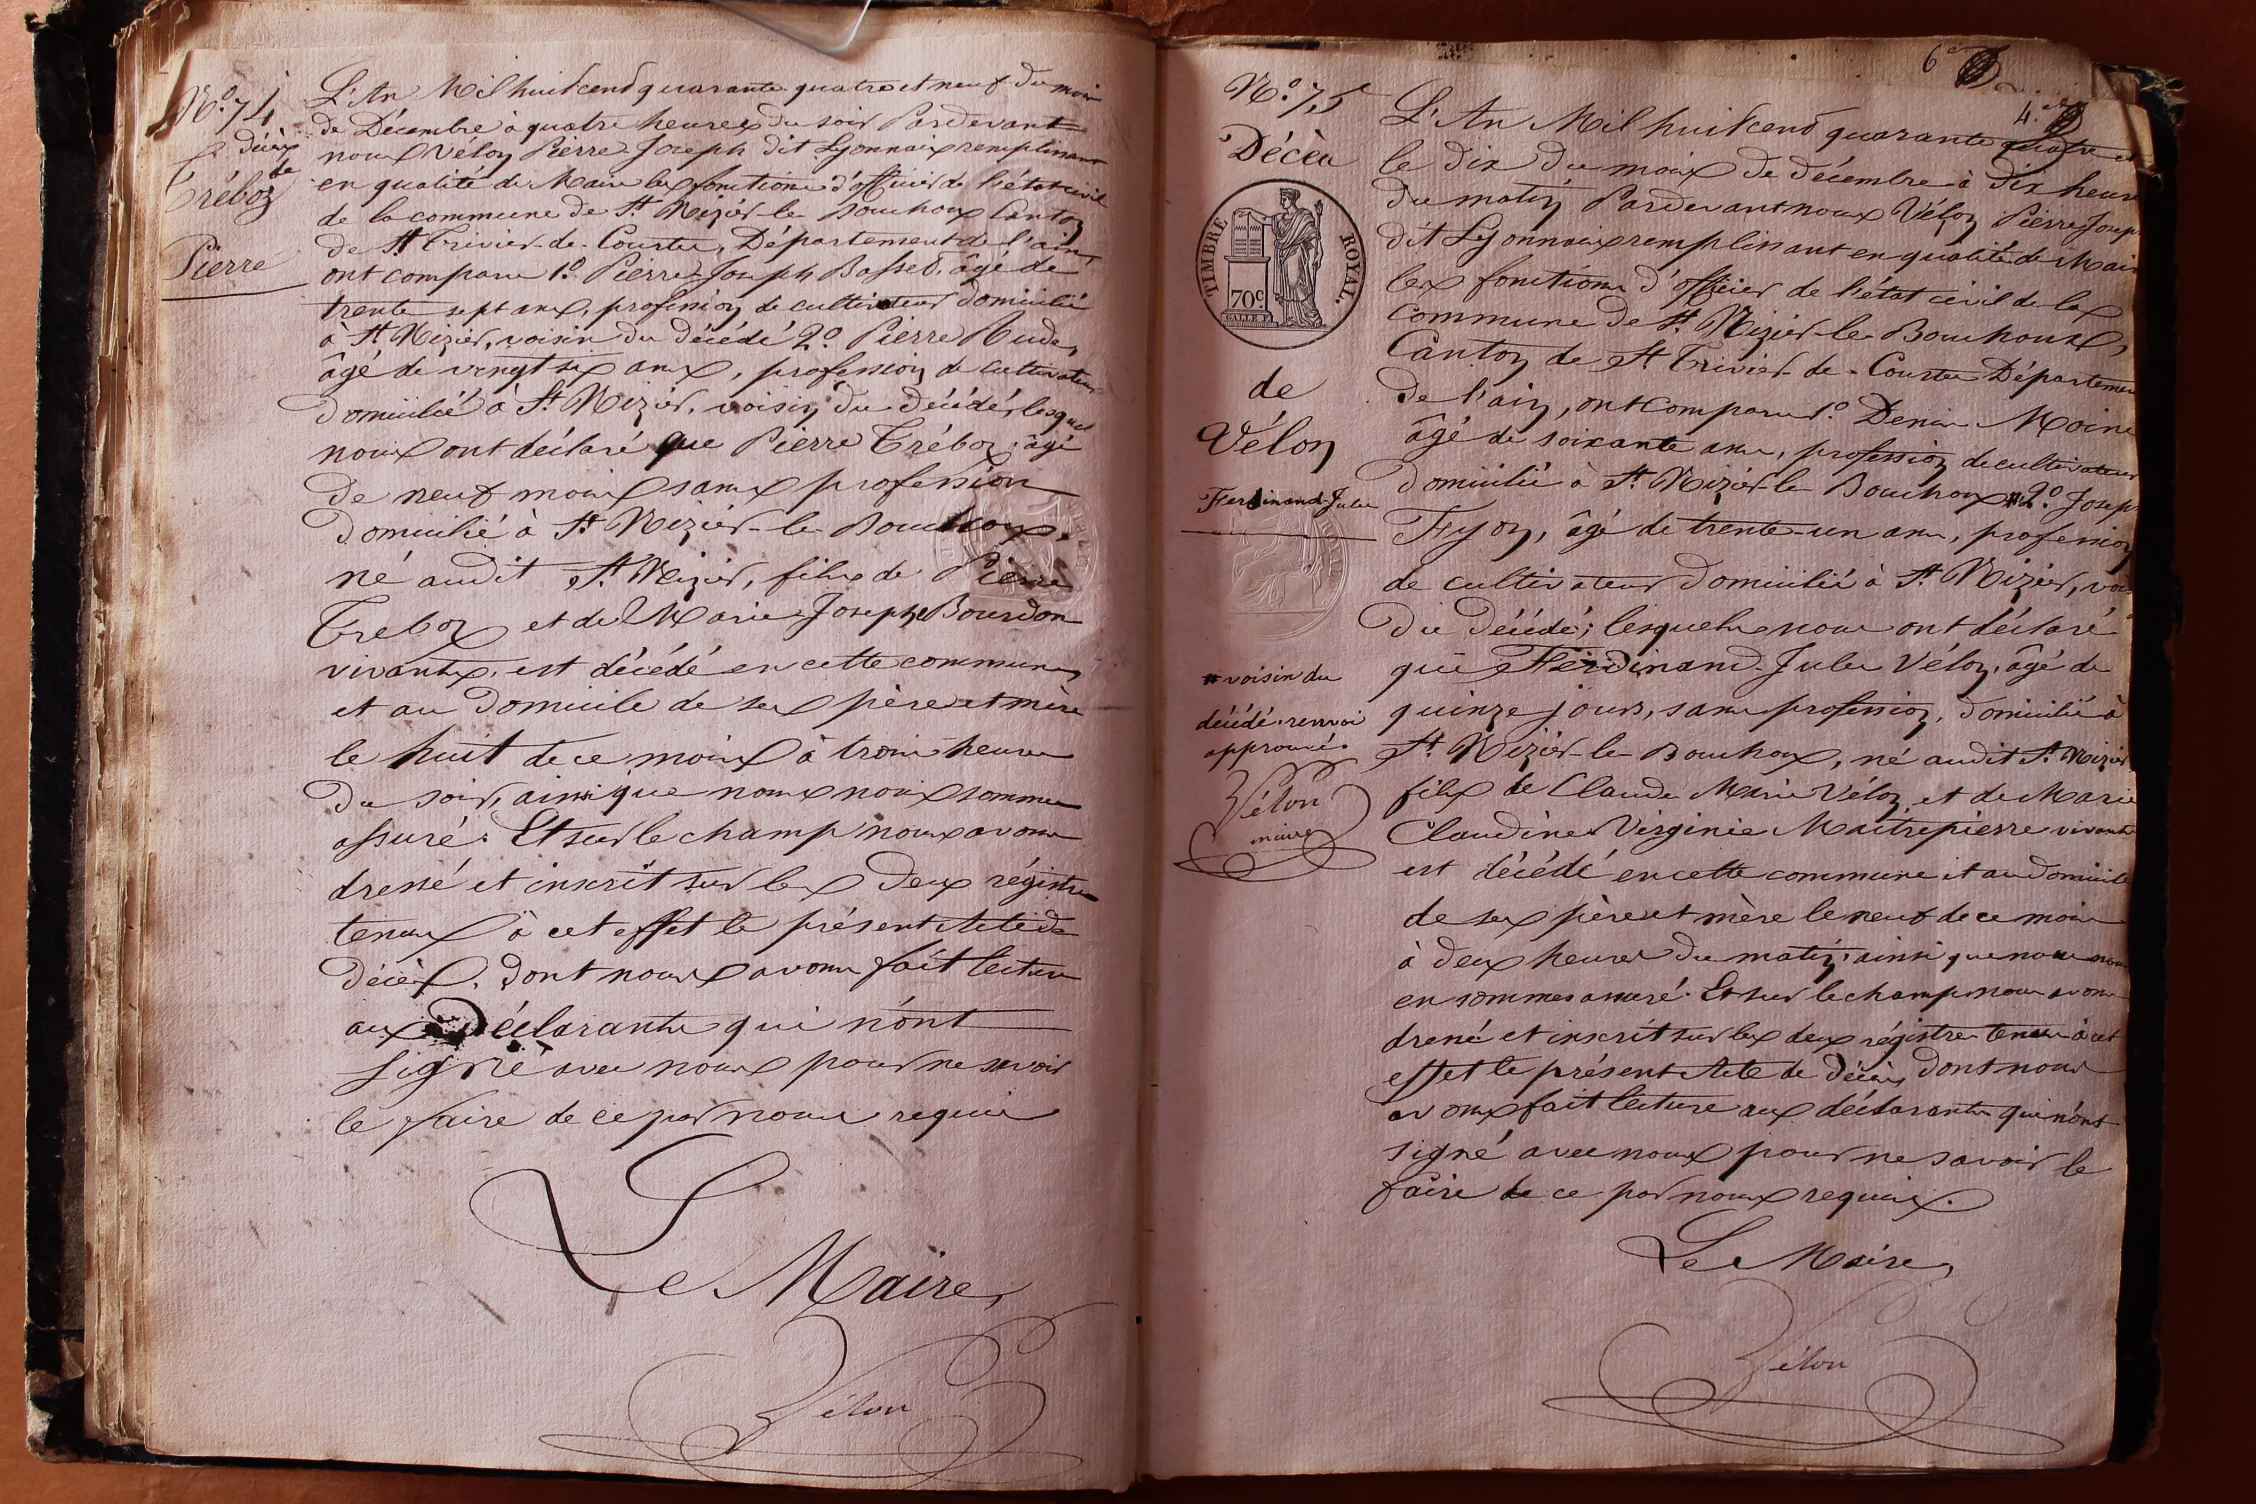 N.° 74
décès
de
Tréboz
Pierre
L'An Mil huit cent quarante quatre et neuf du mois
de Décembre à quatre heures du soir Pardevant
nous Vélon Pierre Joseph dit Lyonnais remplissant
en qualité de Maire les fonctions d'officier de l'état civil
de la commune de St. Nizier-le-Bouchoux Canton
de St Trivier-de-Courtes, Département de l'ain,
ont comparu 1.° Pierre Joseph Basset, âgé de
trente sept ans, profession de cultivateur domicilié
à St Nizier, voisin du décédé 2.° Pierre Rude,
âgé de vingt six ans, profession de cultivateur
domicilié à St. Nizier, voisin du décédé, lesquels
nous ont déclaré que Pierre Tréboz, âgé
de neuf mois sans profession
domicilié à St. Nizier-le-Bouchoux,
né audit St. Nizier, fils de Pierre
Treboz et de Marie Josephe Bourdon
vivants, est décédé en cette commune,
et au domicile de ses père et mère
le huit de ce mois à trois heures
du soir, ainsi que nous nous sommes
assuré. Et sur le champ nous avons
dressé et inscrit sur les deux régistres
tenus à cet effet le présent Acte de
décès, dont nous avons fait lecture
aux Déclarants qui n'ont
signé avec nous pour ne savoir
le faire de ce par nous requis
Le Maire,
Vélon
6
4.
N.° 75
Décès
TIMBRE ROYAL.
70c
de
Vélon
Ferdinand-Jules
# voisin du
décédé. renvoi
approuvé.
Vélon
maire
L'An Mil huit cent quarante quatre et
le dix du mois de décembre à dix heures
du matin Pardevant nous Vélon Pierre Joseph
dit Lyonnais remplissant en qualité de Maire
les fonctions d'officier de l'état civil de la
commune de St. Nizier-le-Bouchoux,
Canton de St Trivier-de-Courtes Département
de l'ain, ont comparu 1.° Denis Moine
âgé de soixante ans, profession de cultivateur
domicilié à St. Nizier-le-Bouchoux # 2.° Joseph
Fyon, âgé de trente-un ans, profession
de cultivateur domicilié à St. Nizier, voisin
du décédé; lesquels nous ont déclaré
que Ferdinand-Jules Vélon, âgé de
quinze jours, sans profession, domicilié à
St. Nizier-le-Bouchoux, né audit St. Nizier
fils de Claude Marie Vélon, et de Marie
Claudine Virginie Maitrepierre vivants
est décédé en cette commune et au domicile
de ses père et mère le neuf de ce mois
à deux heures du matin, ainsi que nous nous
en sommes assuré. Et sur le champ nous avons
dressé et inscrit sur les deux régistres tenus à cet
effet le présent Acte de décès, dont nous
avons fait lecture aux déclarants qui n'ont
signé avec nous pour ne savoir le
faire de ce par nous requis.
Le Maire,
Vélon